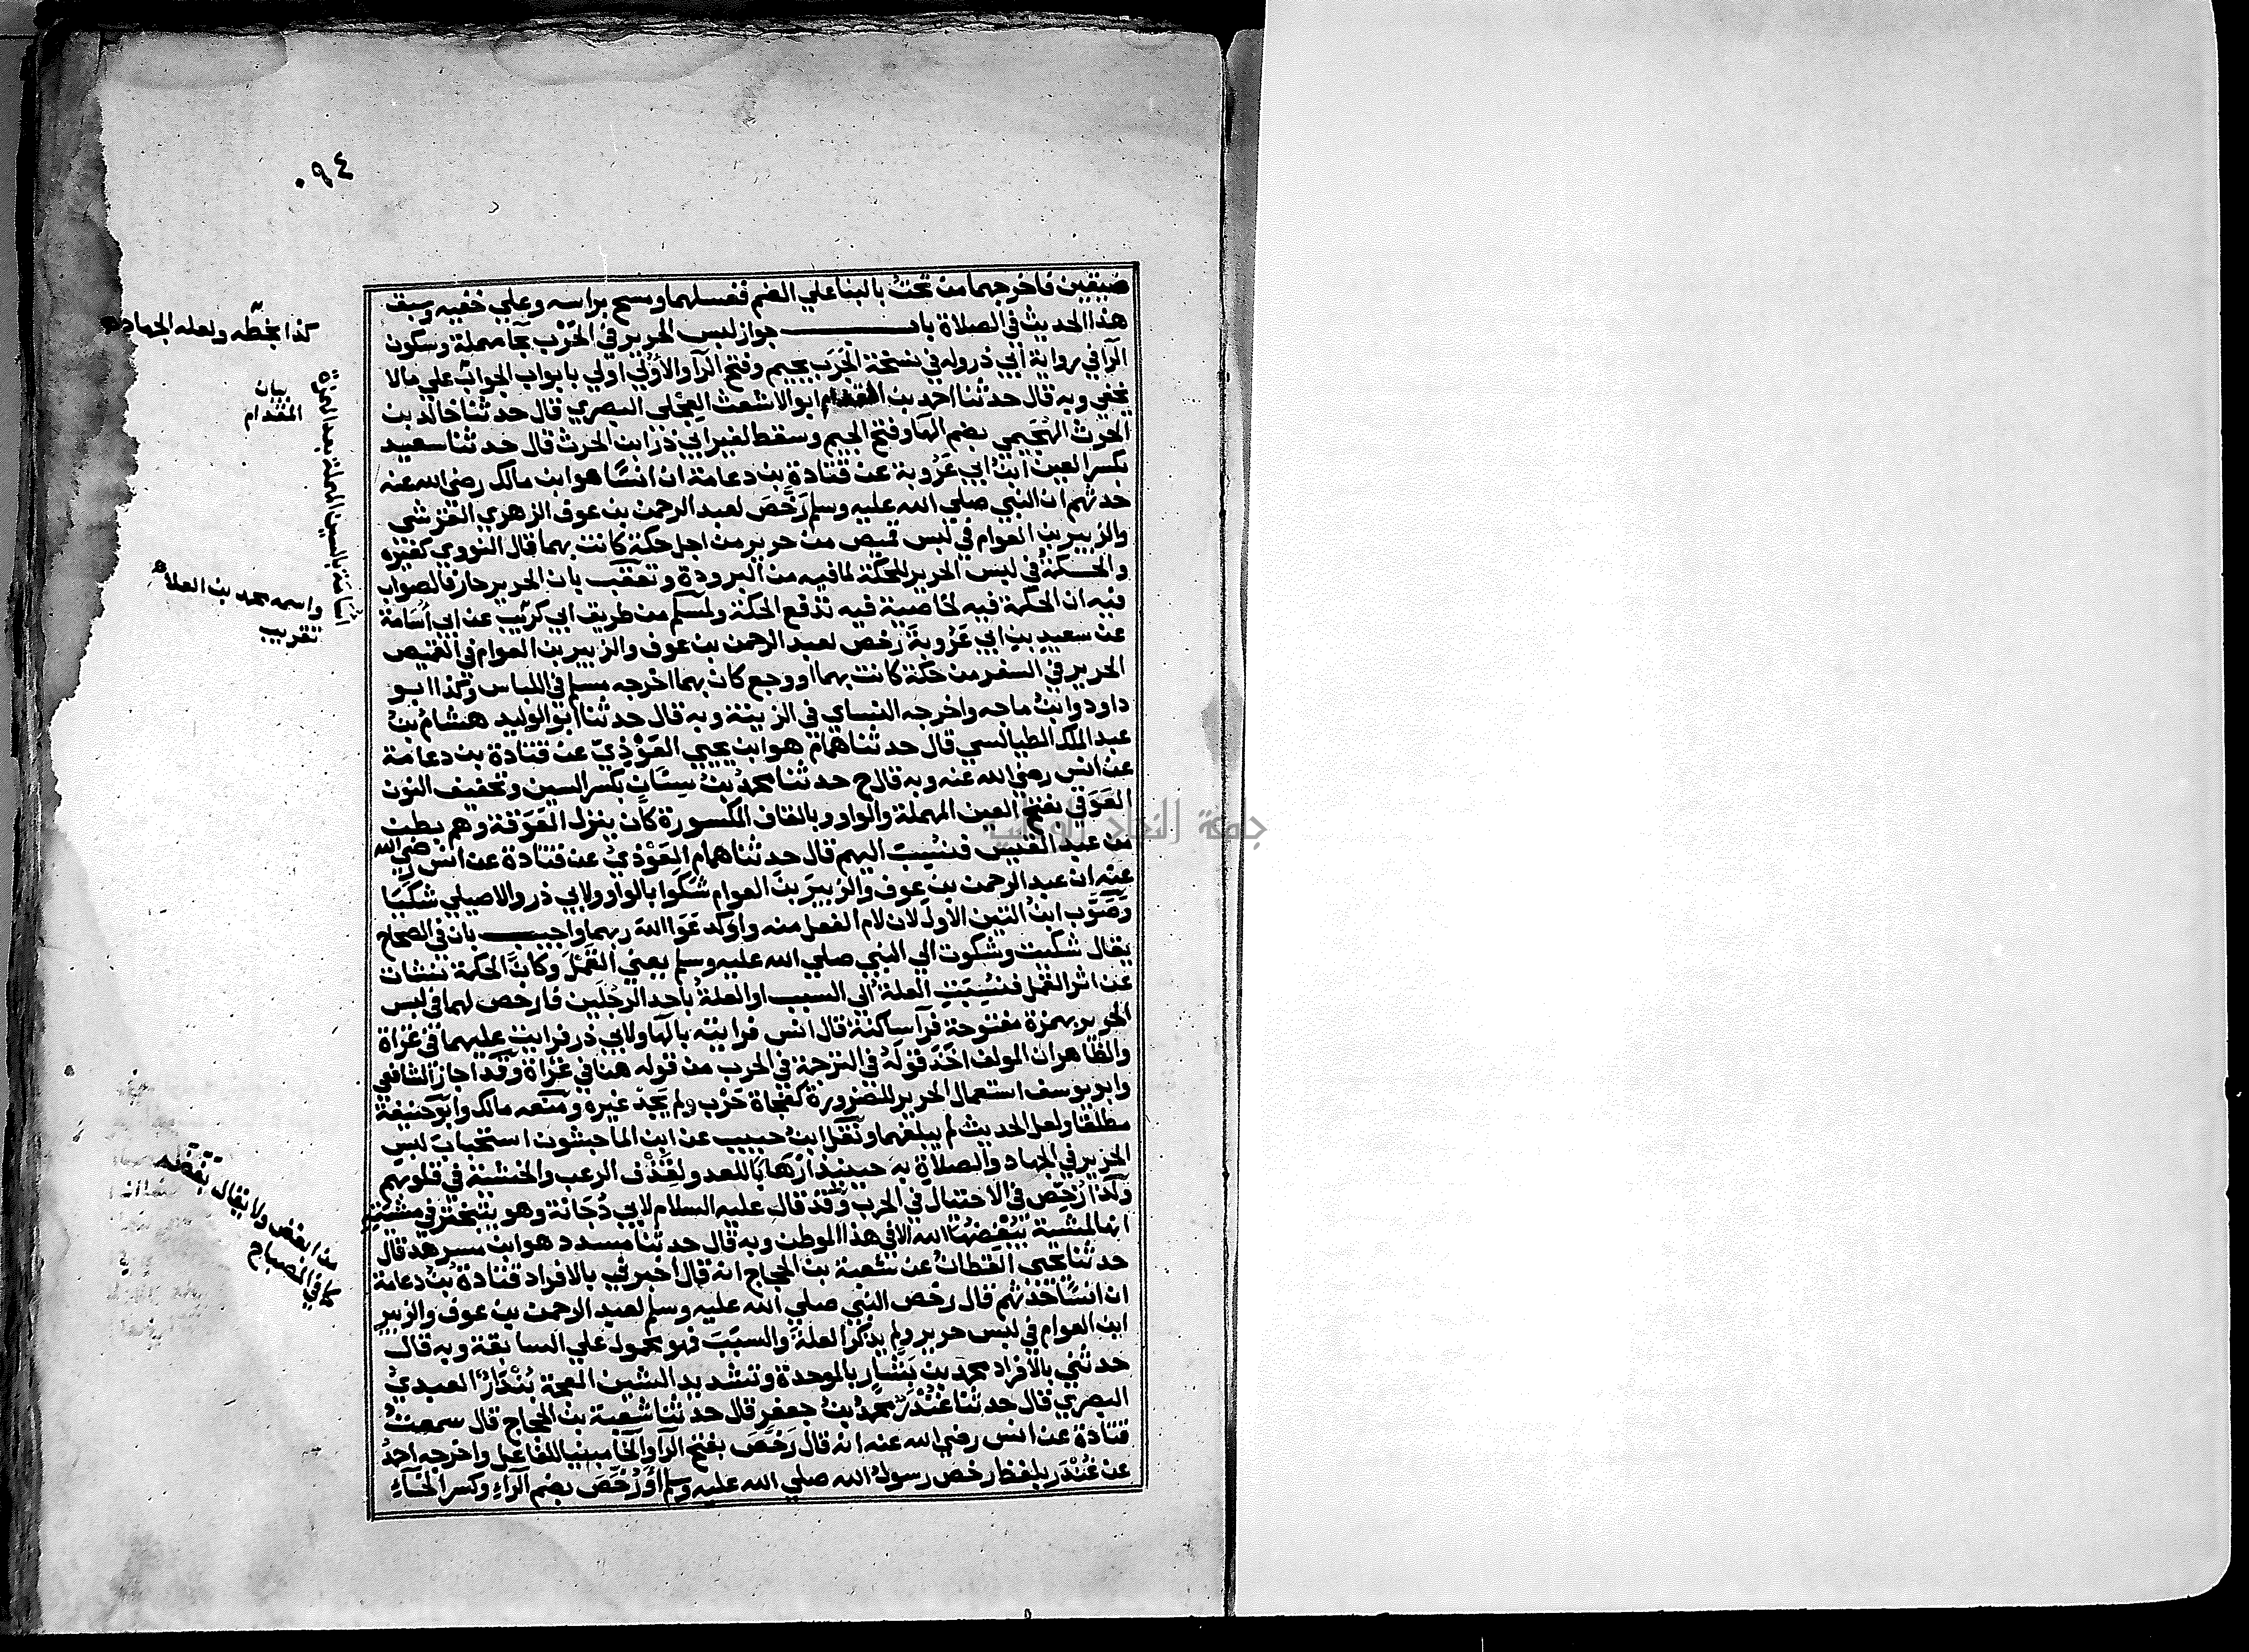 ٠٩٤
ضيقين فاخرجهما من تحت بالبنا علي الضم فغسلهما ومسح براسه وعلي خفيه وسبق
هذا الحديث في الصلاة باب جواز لبس الحرير في الحَرْب بحآ مهملة وسكون
الرآ في رواية ابي ذر وله في نسخة الجَرَب بجيم وفتح الرآ والأولي اولي بابواب الجهاد علي مالا
يخفي وبه قال حدثنا احمد بن المقدام ابو الاشعث العِجْلي البصري قال حدثنا خالد بن
الحرث الهُجَيمي بضم الهآ وفتح الجيم وسقط لغير ابي ذر ابن الحرث قال حدثنا سعيد
بكسر العين ابن ابي عَرُوبة عن قتادة بن دعامة ان انسًا هو ابن مالك رضي الله عنه
حدثهم ان النبي صلي الله عليه وسلم رَخَّصَ لعبد الرحمن بن عوف الزهري القرشي
والزبير بن العوام في لبس قميص من حرير من اجل حكة كانت بهما قال النووي كغيره
والحكمة في لبس الحرير للحكة لما فيه من البرودة وتعقب بان الحرير حار فالصواب
فيه ان الحكمة فيه لخاصية فيه تدفع الحكة ولمسلم من طريق ابي كريب عن ابي اُسَامة
عن سعيد بن ابي عَرُوبة رَخص لعبد الرحمن بن عوف والزبير بن العوام في القميص
الحرير في السفر من حكة كانت بهما او وجع كان بهما اخرجه مسلم في اللباس وكذا ابو
داود وابن ماجه واخرجه النساي في الزينة وبه قال حدثنا ابو الوليد هشام بن
عبد الملك الطيالسي قال حدثنا همام هو ابن يحيي العَوْذِيّ عن قتادة بن دعامة
عن انس رضي الله عنه وبه قال ح حدثنا محمد بن سِنَانٍ بكسر السين وتخفيف النون
العَوَقي بفتح العين المهملة والواو وبالقاف المكسورة كان ينزل العَوَقة وهم بطن
من عبد القيس فنُسِبَ اليهم قال حدثنا همام العَوْذِيّ عن قتادة عن انس رضي الله
عنه ان عبد الرحمن بن عوف والزبيرَ بنَ العوام شَكَوا بالواو ولابي ذر والاصيلي شكَيَا
وصَوّب ابن التين الاول لان لام الفعل منه واو كدَعَوَا الله ربهما واجيب بان في الصحاح
يقال شكيت وشكوت الي النبي صلي الله عليه وسلم يعني القَمْلَ وكانّ الحكة نشات
عن اثر القمل فنُسِبَتِ العلة الي السبب او العلة باحد الرجُلَين فارخص لهما في لبس
الحرير بهمزة مفتوحة فرآ ساكنة قال انس فرايته بالهآ ولابي ذر فرايت عليهما في غزاة
والظاهر ان المولف اخَذ قولَهُ في الترجمة في الحرب من قوله هنا في غزاة وقد اجاز الشافعي
وابو يوسف استعمال الحرير للضرورة كفجاة حَرْب ولم يَجد غيره ومنعه مالك وابو حنيفة
مطلقا ولعل الحديث لم يبلغهما ونَقَل ابن حبيب عن ابن الماجشون استحبابَ لبسِ
الحرير في الجهاد والصلاة به حينيذ ارْهَابًا للعدو ولِقَذْف الرعب والخشية في قلوبهم
ولذا رُخِّص في الاختيال في الحرب وقد قال عليه السلام لابي دُجَانة وهو يتبختر في مشيَتِه
انها لمشية يُبْغِضُهَا الله الا في هذا الموطن وبه قال حدثنا مسدد هو ابن مسرهد قال
حدثنا يحيى القطان عن شعبة بن الحجاج انه قال اخبرني بالافراد قتادة بن دعامة
ان انسًا حدثهم قال رخص النبي صلي الله عليه وسلم لعبد الرحمن بن عوف والزبير
ابن العوام في لبس حرير ولم يذكر العلةَ والسبَبَ فهو محمول علي السابقة وبه قال
حدثني بالافراد محمد بن بَشَّارٍ بالموحدة وتشديد الشين المعجمة بُنْدَارٌ العبديُّ
البصري قال حدثنا غُنْدَرٌ محمد بن جعفر قال حدثنا شعبة بن الحجاج قال سمعت
قتادة عن انس رضي الله عنه انه قال رَخَّصَ بفتح الرآ والخآ مبنيا للفاعل واخرجه احمدُ
عن غُنْدَرٍ بلفظ رخص رسول الله صلي الله عليه وسلم اَوْ رُخِّصَ بضم الرآءِ وكسر الخآءِ
كذا بخطّه ولعله الجهاد
بيان
المقدام
اُسَامَة بالسين المهملة بعد الهمزة
واسمه محمد بن العلاء
تقريب
من ابغض ولا يقال بَغَضَه
كما في المصباح
جامعة النجاح الوطنية